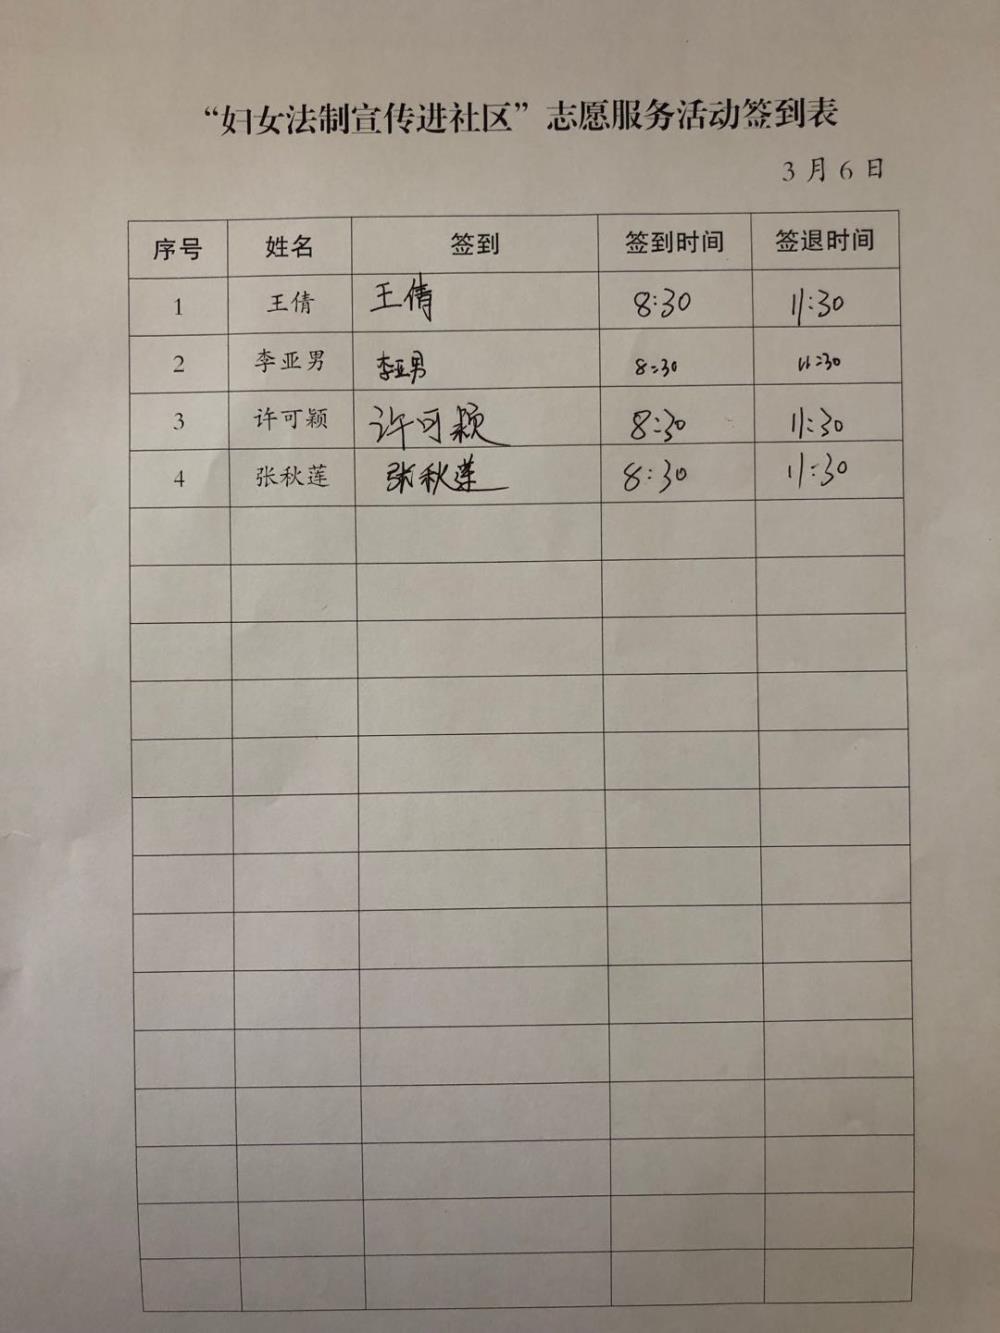 “妇女法制宣传进社区”志愿服务活动签到表
3月6日
序号 姓名 签到 签到时间 签退时间
1 王倩 王倩 8:30 11:30
2 李亚男 李亚男 8:30 11:30
3 许可颖 许可颖 8:30 11:30
4 张秋莲 张秋莲 8:30 11:30